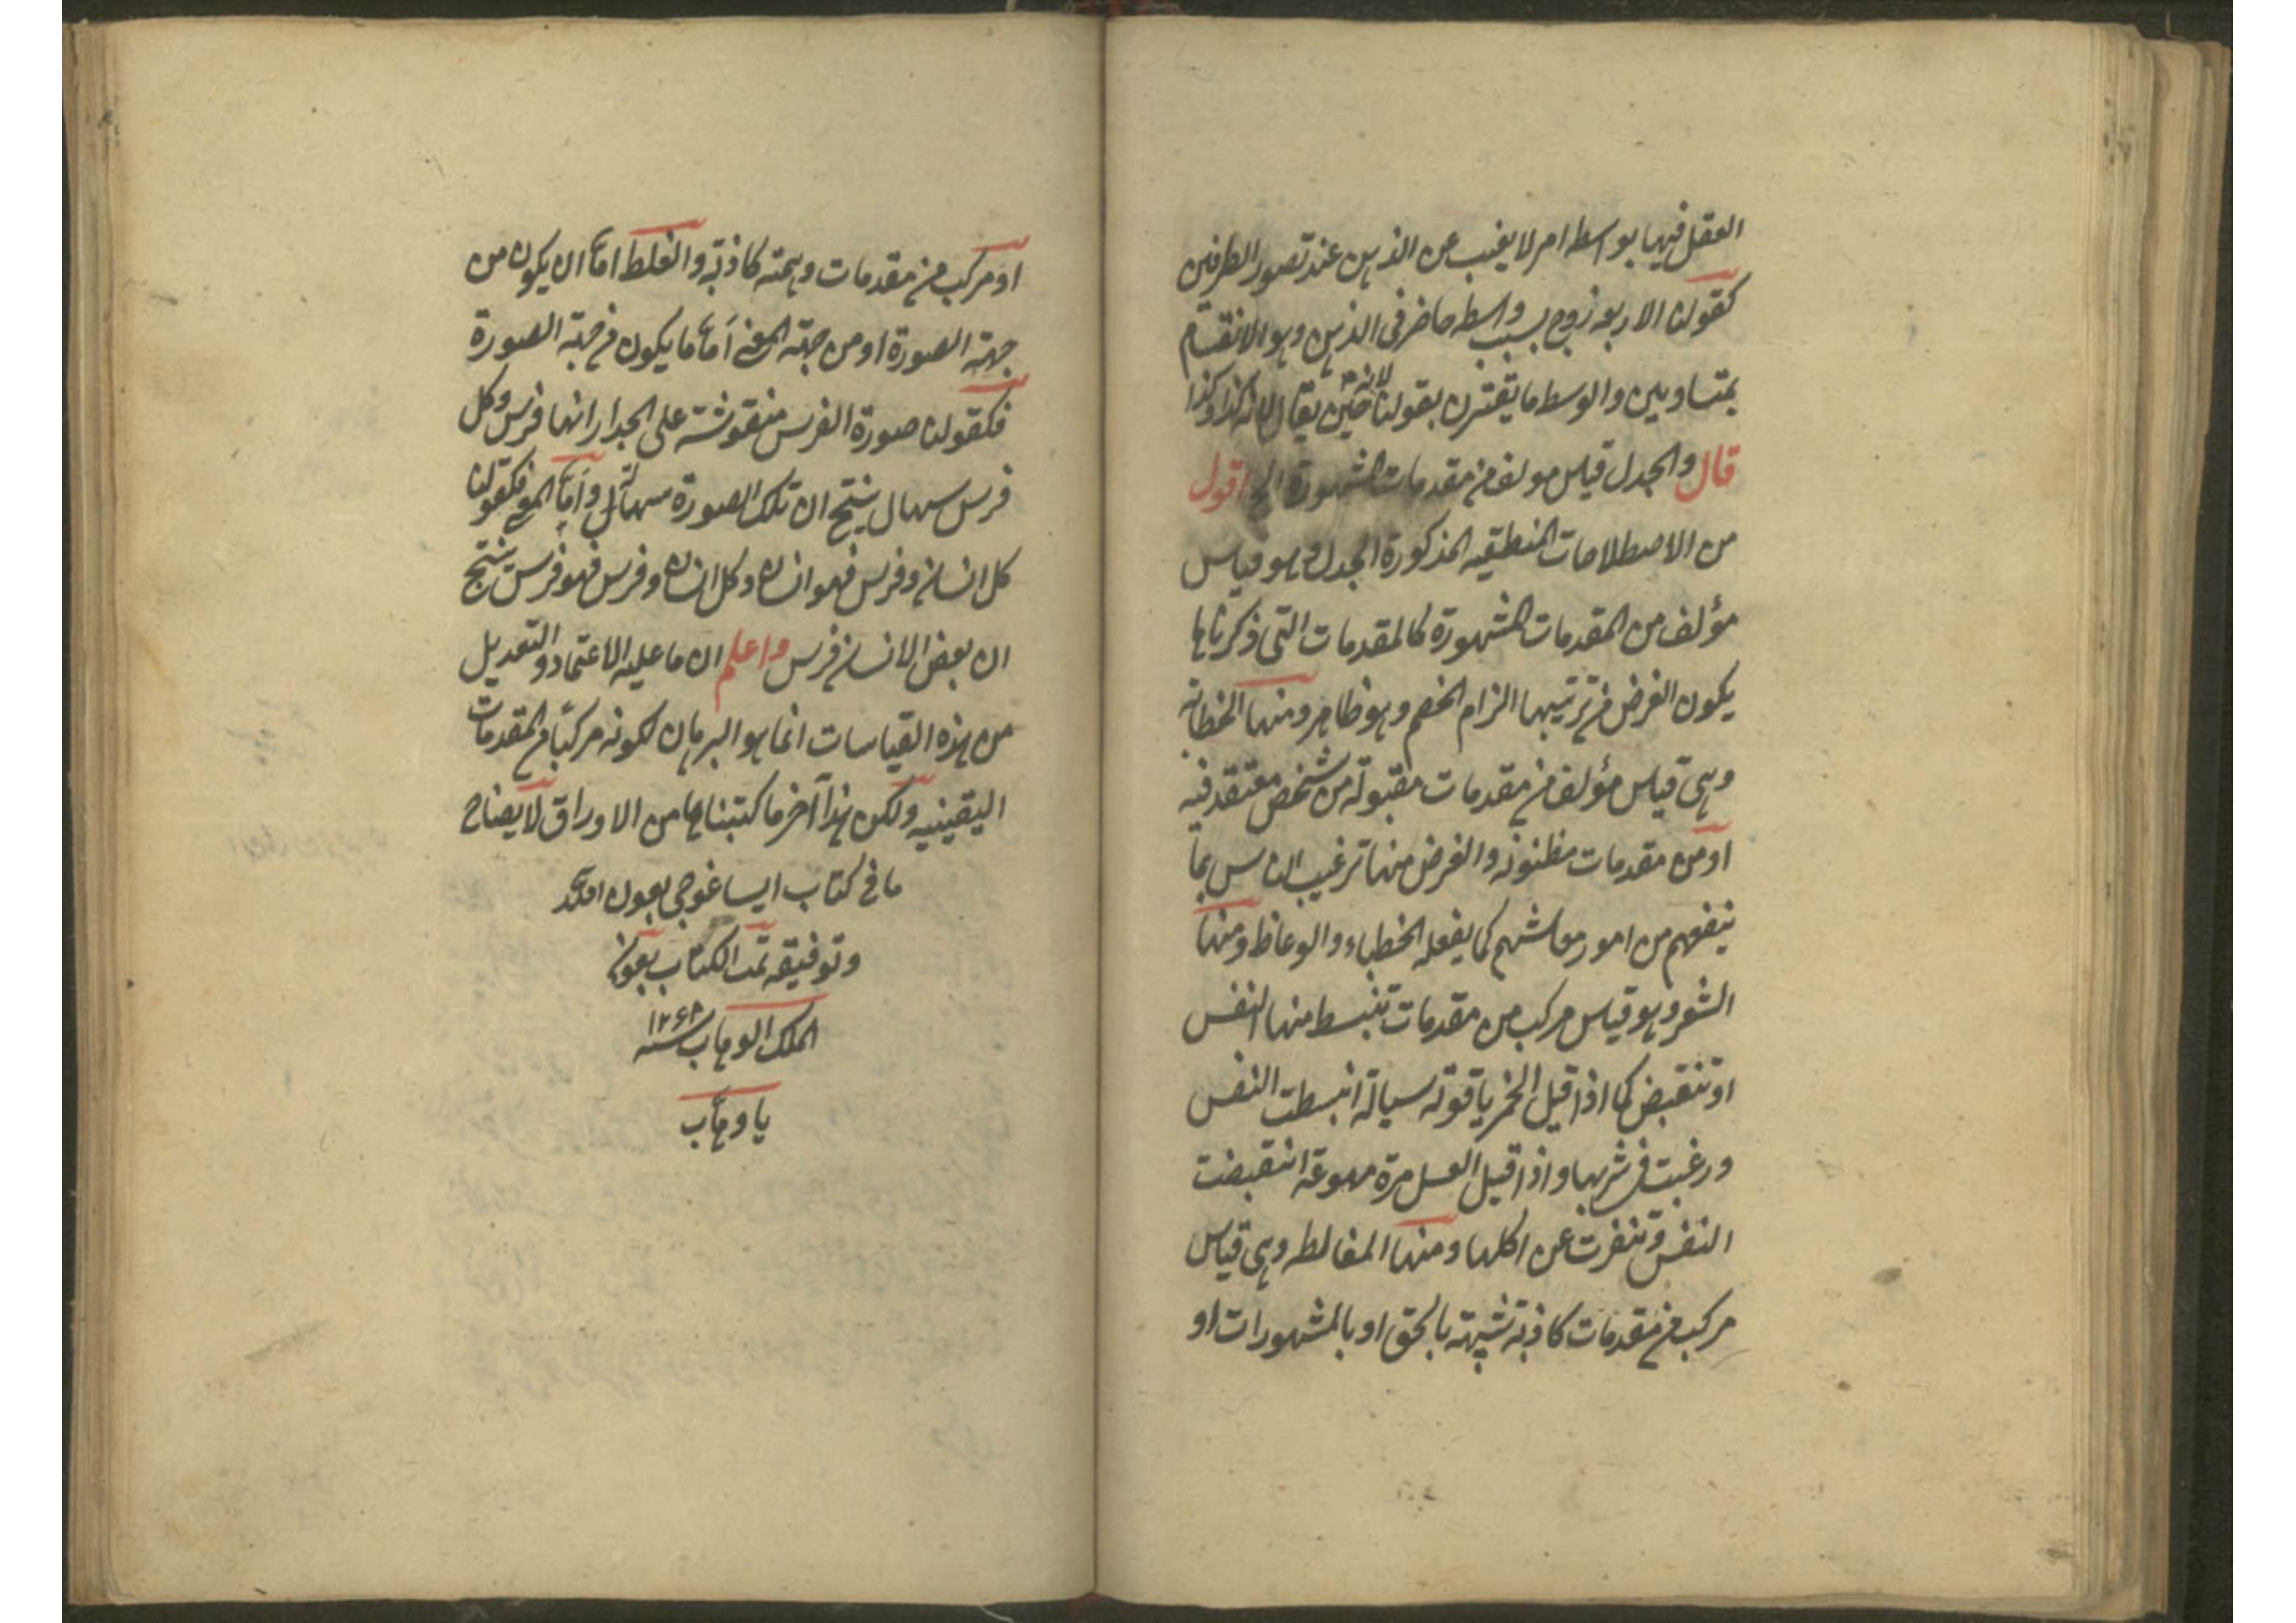 العقل فيها بواسطه امر لا يغيب عن الذهن عند تصور الطرفين
كقولنا الاربعه زوج بسبب واسطه حاضر فى الذهن وهو الانقسام
بمتساويين والوسط ما يقترن بقولنا لانه حين يقال لانه كذا وكذا
قال والجدل قياس مولف من مقدمات المشهورة الخ اقول
من الاصطلاحات المنطقيه المذكورة الجدل وهو قياس
مؤلف من المقدمات المشهورة كالمقدمات التى ذكرناها
يكون الغرض من ترتيبها الزام الخصم وهو ظاهر ومنها الخطابة
وهى قياس مؤلف من مقدمات مقبولة من شخص معتقد فيه
او من مقدمات مظنونه والغرض منها ترغيب الناس بما
ينفعهم من امور معاشهم كما يفعله الخطباء والوعاظ ومنها
الشعر وهو قياس مركب من مقدمات تنبسط منها النفس
او تنقبض كما اذا قيل الخمر ياقوتة سيالة انبسطت النفس
ورغبت فى شربها واذا قيل العسل مرة مهوعة انقبضت
النفس وتنفرت عن اكلها ومنها المغالطه وهى قياس
مركب من مقدمات كاذبة شبيهة بالحق او بالمشهورات او
او مركب من مقدمات وهمية كاذبة والغلط اما ان يكون من
جهة الصورة او من جهة المعنى اما ما يكون من جهة الصورة
فكقولنا صورة الفرس منقوشة على الجدار انها فرس وكل
فرس سهال ينتج ان تلك الصورة سهالة واما المعنى فكقولنا
كل انسان وفرس فهو انسان وكل انسان وفرس فهو فرس ينتج
ان بعض الانسان فرس واعلم ان ما عليه الاعتماد والتعديل
من هذه القياسات انما هو البرهان لكونه مركبا من المقدمات
اليقينيه ولكن هذا آخر ما كتبناها من الاوراق لايضاح
ما فى كتاب ايساغوجى بعون الله
وتوفيقه تمت الكتاب بعون
الملك الوهاب سنه ١٢٦٨
يا وهاب